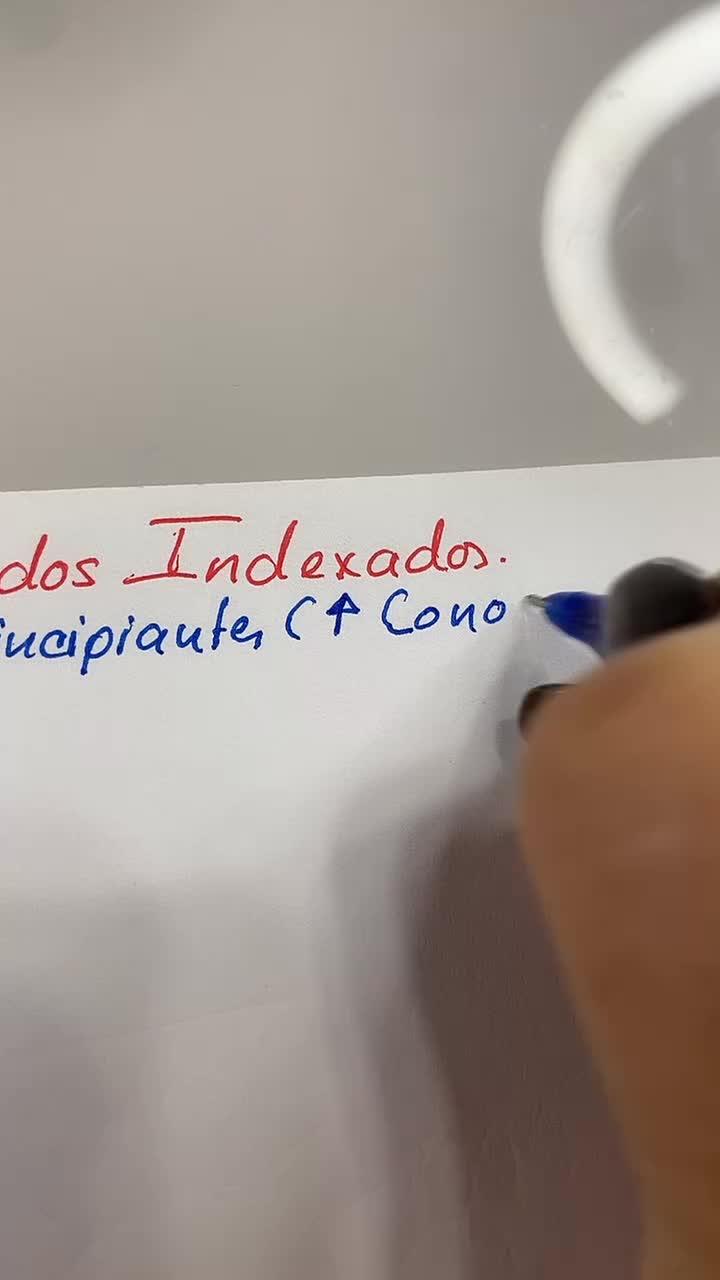 dos Indexados.
incipiantes (↑ Cono